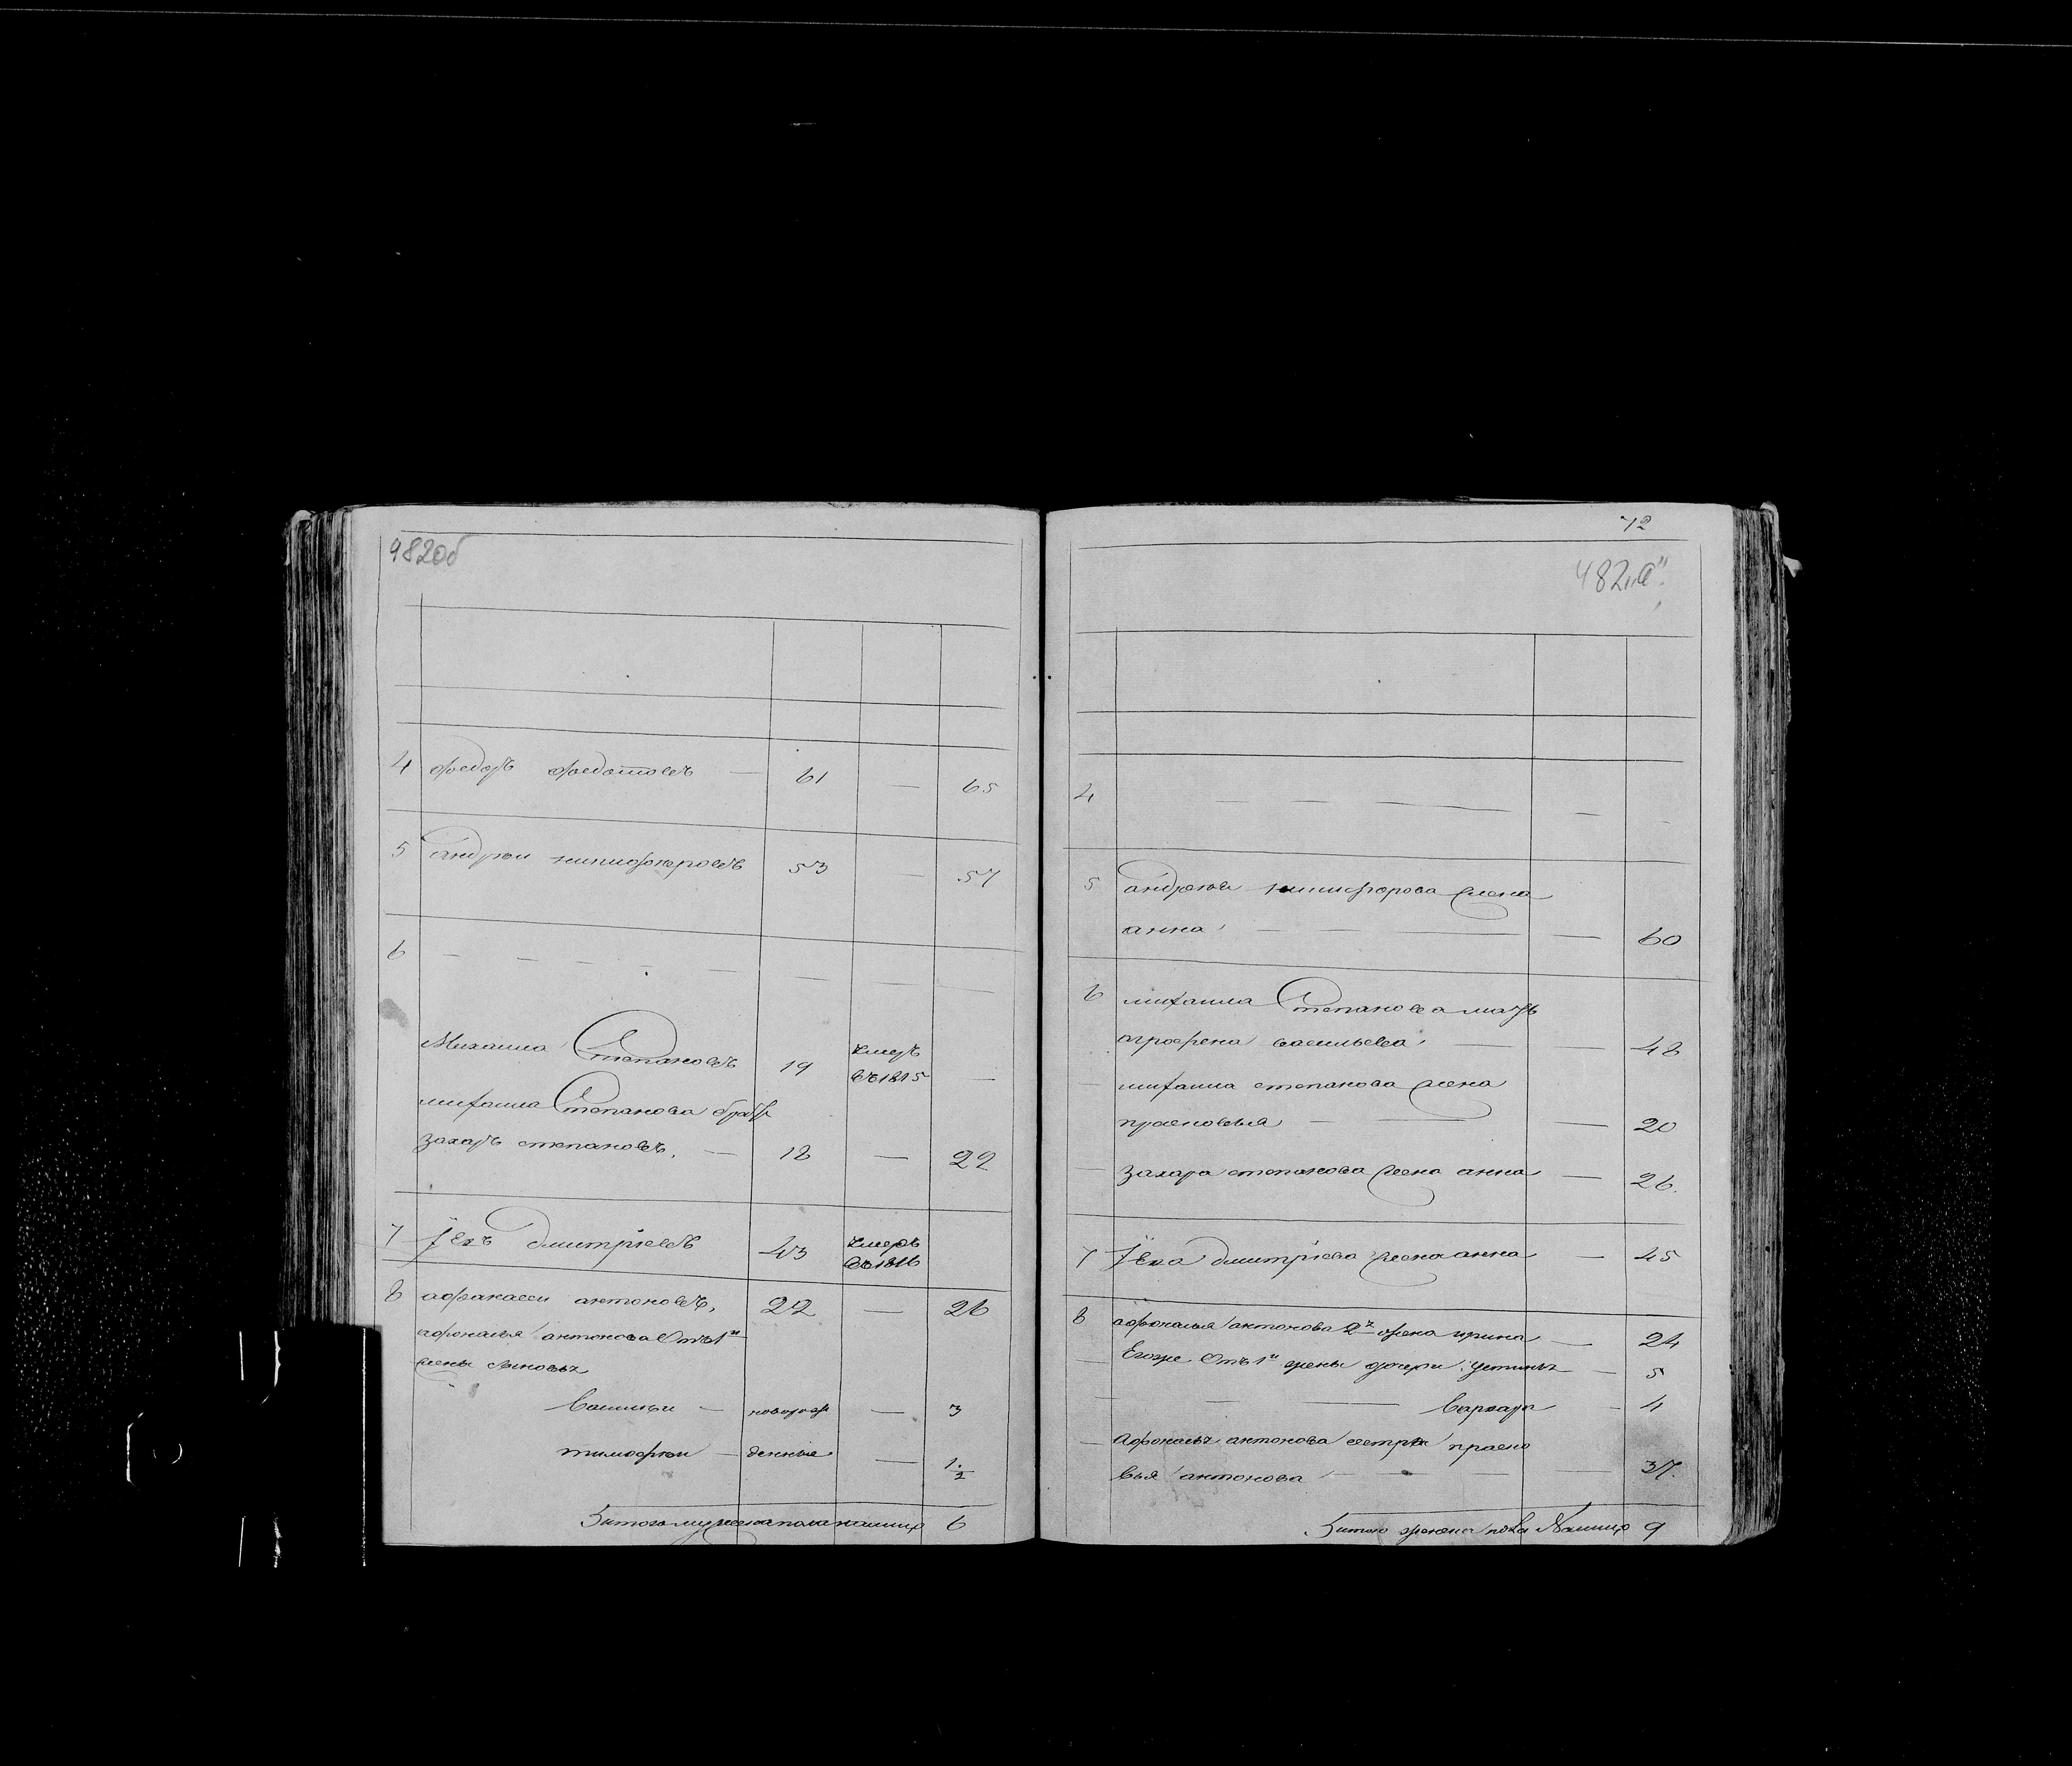 482об
4 федоръ федотовъ — 61 — 65
5 андреи никифоровъ 53 — 57
6 — — — — — — — —
Михаила Степановъ 19 умеръ въ 1815 —
михаила Степанова братъ
захаръ степановъ. — 18 — 22
7 Дмитриевъ 43 умеръ въ 1816
8 афанасеи антоновъ, 22 — 26
афонасья антонова Отъ 1й
жены сыновья
Василеи — новорож — 3
тимофеи — денные — 1 1/2
Итого мужеска пола налицо 6
72
482„а"
4 — — — — —
5 андрея никифорова жена
анна — — — — 60
6 михаила Степанова мать
агрофена васильева — — 48
— михаила степанова жена
прасковья — — — 20
— захара степанова жена анна — 26.
7 дмитриева жена анна — 45
8 афонасья антонова 2я жена ирина — 24
— Егоже Отъ 1й жены дочери: устинья — 5
— — Варвара — 4
— Афонасья антонова сестра праско
вья антонова — — — — 37.
Итого женска пола Налицо 9